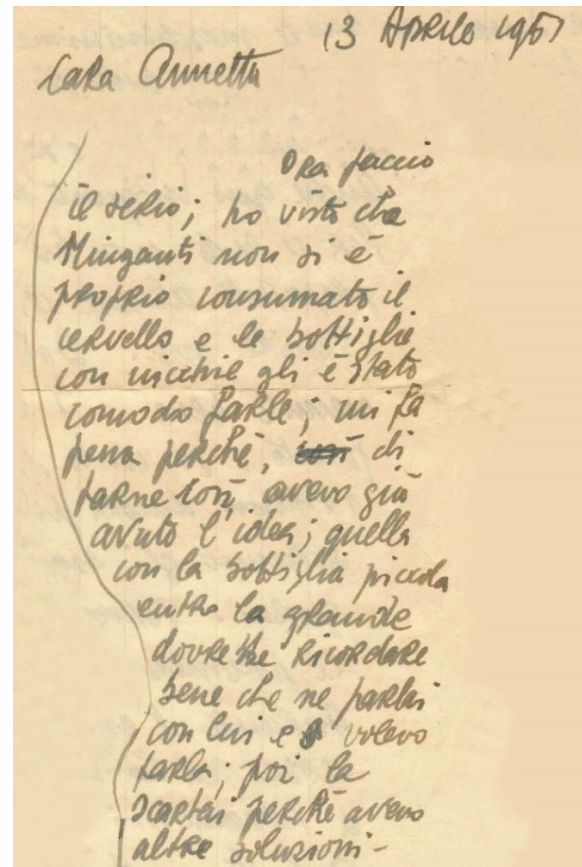 13 Aprile 1951
Cara Annetta
Ora faccio
il serio; ho visto che
Minganti non si è
proprio consumato il
cervello e le bottiglie
con nicchie gli è stato
comodo farle; mi fa
pena perchè, così di
farne così, avevo già
avuto l'idea; quella
con la bottiglia piccola
entro la grande
dovrebbe ricordare
bene che ne parlai
con lui e volevo
farla; poi la
scartai perchè avevo
altre soluzioni-